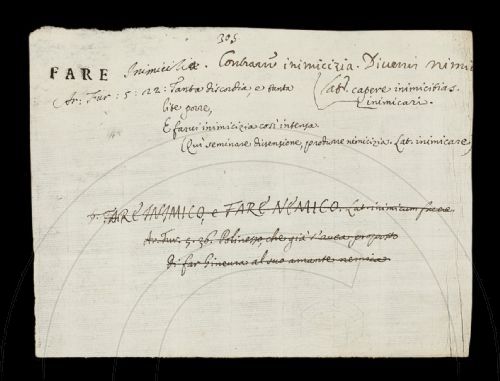 305
FARE Inimicizia. Contrarre inimicizia. Divenir nimic
Ar: Fur: 5: 22: Tanta discordia, e tanta (Lat. capere inimicitias.
lite porre, inimicari.
E farvi inimicizia così intensa.
(Qui seminare dissensione, produrre nimicizia. Lat. inimicare)
FARE INIMICO, e FARE NEMICO. Lat. inimicum facere.
Ar. Fur. 5. 26. Polinesso che già s'avea proposto
di far Ginevra al suo amante nemica